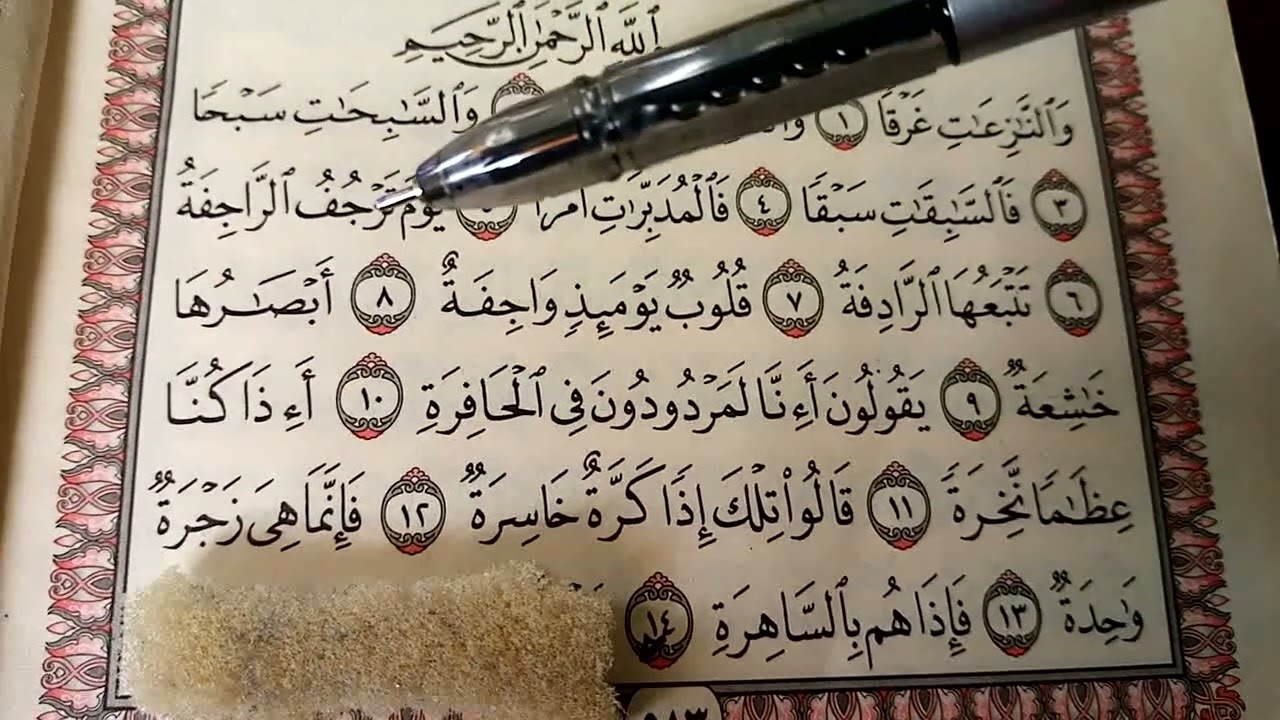 ٱللَّهِ ٱلرَّحْمَٰنِ ٱلرَّحِيمِ
وَٱلنَّٰزِعَٰتِ غَرْقًا ١ وَٱلسَّٰبِحَٰتِ سَبْحًا
٣ فَٱلسَّٰبِقَٰتِ سَبْقًا ٤ فَٱلْمُدَبِّرَٰتِ أَمْرًا ٥ يَوْمَ تَرْجُفُ ٱلرَّاجِفَةُ
٦ تَتْبَعُهَا ٱلرَّادِفَةُ ٧ قُلُوبٌ يَوْمَئِذٍ وَاجِفَةٌ ٨ أَبْصَٰرُهَا
خَٰشِعَةٌ ٩ يَقُولُونَ أَءِنَّا لَمَرْدُودُونَ فِى ٱلْحَافِرَةِ ١٠ أَءِذَا كُنَّا
عِظَٰمًا نَّخِرَةً ١١ قَالُوا۟ تِلْكَ إِذًا كَرَّةٌ خَاسِرَةٌ ١٢ فَإِنَّمَا هِىَ زَجْرَةٌ
وَٰحِدَةٌ ١٣ فَإِذَا هُم بِٱلسَّاهِرَةِ ١٤
٥٨٣